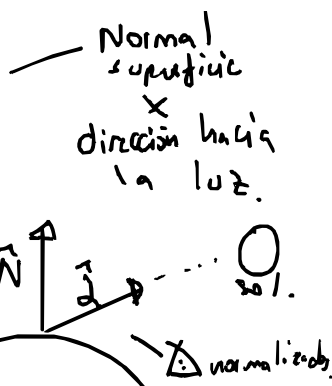 Normal
superficie
×
dirección hacia
la luz.
N
sol.
normalizados